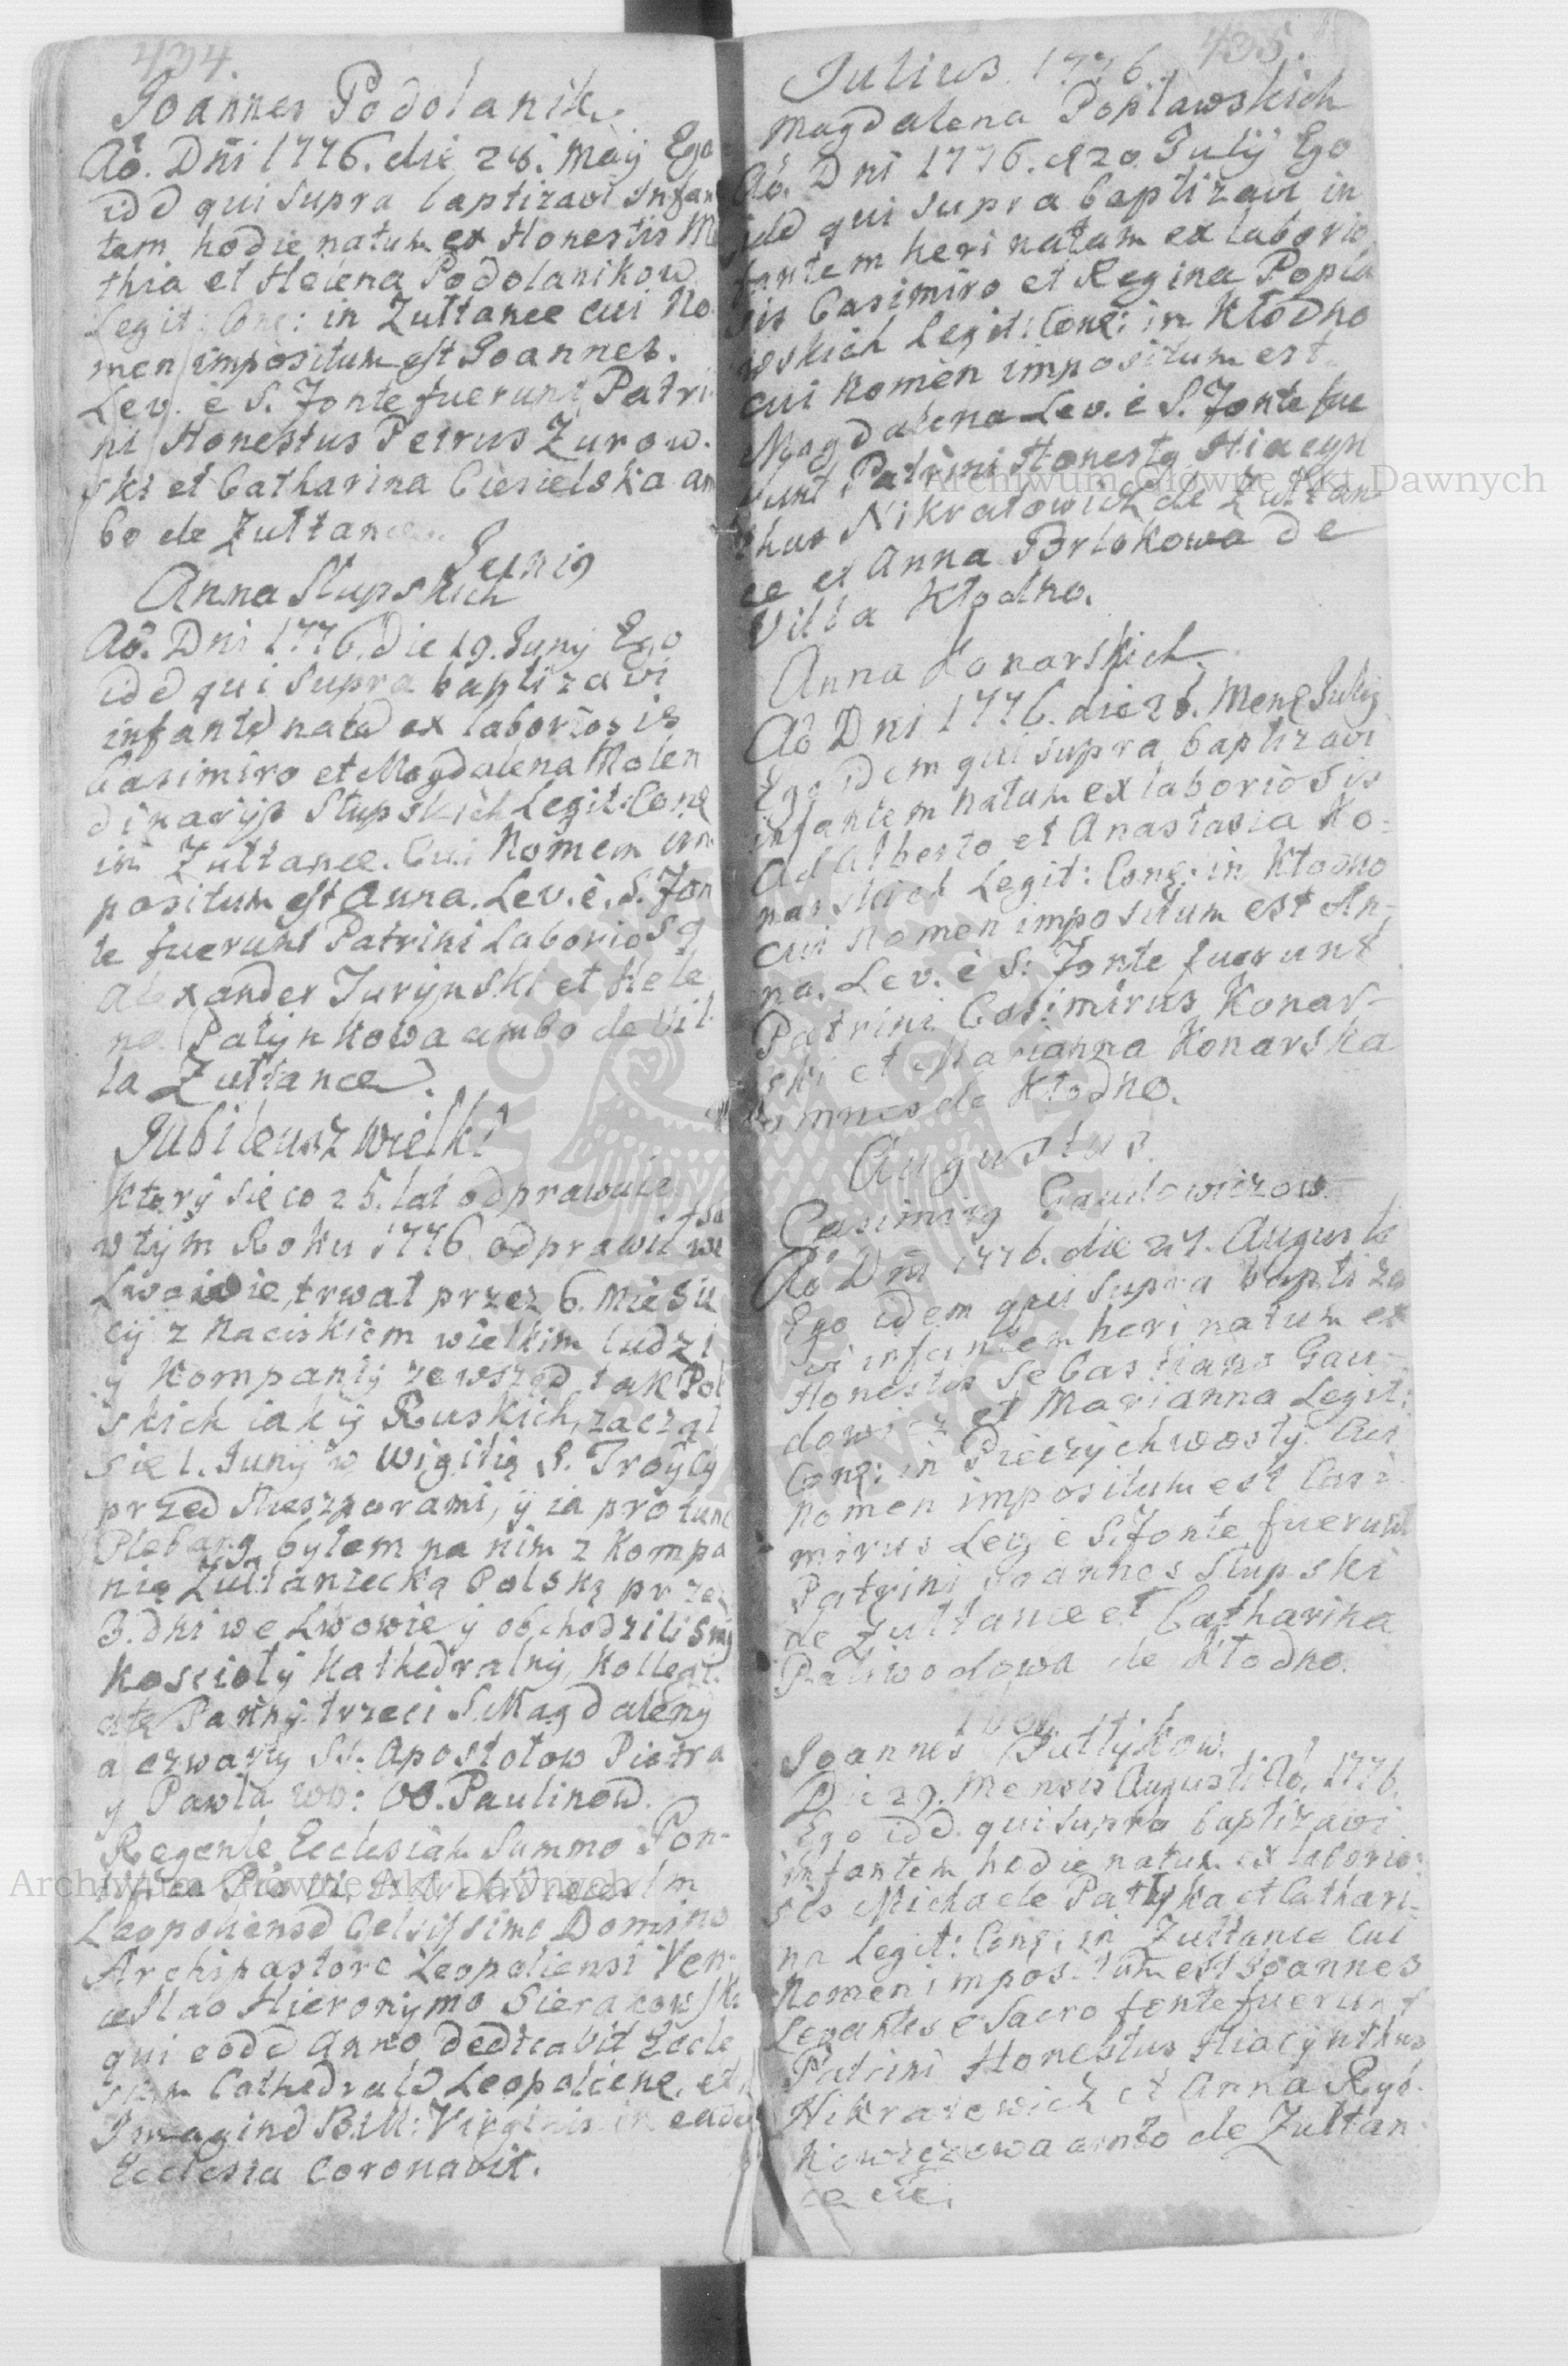 434.
Joannes Podolanik.
Aō. Dñi 1776. die 28. Maÿ Ego
idd qui supra baptizavi Infan
tem hodie natum ex Honestis Ma
thia et Helena Podolanikow
Legit: Coně: in Zułtance cui No
men impositum est Joannes.
Lev. è S. Fonte fuerunt Patri
ni Honestus Petrus Zurow.
ski et Catharina Ciesielska am
bo de Zułtance.
Junig
Anna Słupskich
Aō. Dni 1776. die 19. Junÿ Ego
idd qui supra baptizavi
infantd natd ex laboriosis
Casimiro et Magdalena Molen
dinarijs Słupskich Legit: Coně
in Zułtance. Cui Nomen im
positum est Anna. Lev. è. S. Fon
te fuerunt Patrini Laboriosg
Alexander Jurÿnski et Hele
na Patÿnkowa ambo de Vil
la Zułtance.
Jubileusz wielki
Ktory sie co 25. lat odprawuie
w tÿm Roku 1776 odprawił sie we
Lwowie, trwał przez 6. Miesię
cÿ z naciskiem wielkim ludzi
ÿ Kompanÿ zewsząd tak Pol
skich iak ÿ Ruskich, zaczął
sie 1. Junÿ w Wigilią S. Troÿcÿ
przed Nieszporami, ÿ ia protunc
Plebang byłem na nim z Kompa
nią Zułtaniecką Polską przez
3. dni we Lwowie ÿ obchodzilismÿ
Koscioły Kathedralnÿ, Kollegi
atę Pannÿ trzeci S. Magdalenÿ
a czwartÿ SS. Apostołow Piotra
ÿ Pawła ww: OO. Paulinow.
Regente Ecclesiam Summo Pon-
tifice Pio VI.
Leopoliensd Celsissimo Domino
Archipastore Leopoliensi Ven-
ceslao Hieronÿmo Sierakowski
qui eodd Anno dedicavit Eccle
siam Cathedrald Leopolieně. et
Imagind B.M: Virginis in eadd
Ecclesia Coronavit.
435.
Julius. 1776.
Magdalena Popławskich
Aō. Dni 1776. d 20. Julÿ Ego
idd qui supra baptizavi in
fantem heri natam ex laborio
sis Casimiro et Regina Popła
wskich Legit: Coně: in Kłodno
cui Nomen impositum est
Magdalena Lev. è S. Fonte fue
runt Patrini Honestg Hiacyn
thus Nikratowich de Zułtan
ce et Anna Brlokowa de
Villa Kłodno.
Anna Konarskich.
Aō Dni 1776. die 26. Menš Julÿ
Ego idem qui supra baptizavi
infantem natam ex laboriosis
Adalberto et Anastasia Ko-
narskich Legit: Coně: in Kłodno
cui Nomen impositum est An-
na. Lev. è S: Fonte fuerunt
Patrini Casimirus Konar-
ski et Marianna Konarska
omnes de Kłodno.
Augustus.
Casimirg Gaudowiczow.
Aō Dni 1776. die 27. Augusti
Ego idem qui supra baptiza
vi infantem heri natum ex
Honestis Sebastiano Gau-
dowicz et Marianna Legit:
Coně: in Pieczÿchwostÿ. Cui
Nomen impositum est Casi
mirus Lev. è S. Fonte fuerunt
Patrini Joannes Słupski
de Zułtance et Catharina
Paliwodowa de Kłodno.
Joannes
Die 29. Mensis Augusti Aō. 1776.
Ego idd. qui supra baptizavi
infantem hodie natum ex laborio-
sis Michaele Patÿka et Cathari-
na Legit: Coně: in Zułtance cui
Nomen impositum est Joannes
Levantes è Sacro fonte fuerunt
Patrini Honestus Hiacÿnthus
Nikratowich et Anna Ryb-
kowiczowa ambo de Zułtan
ce etc.
Archiwum Główne Akt Dawnych
Archiwum Główne Akt Dawnych